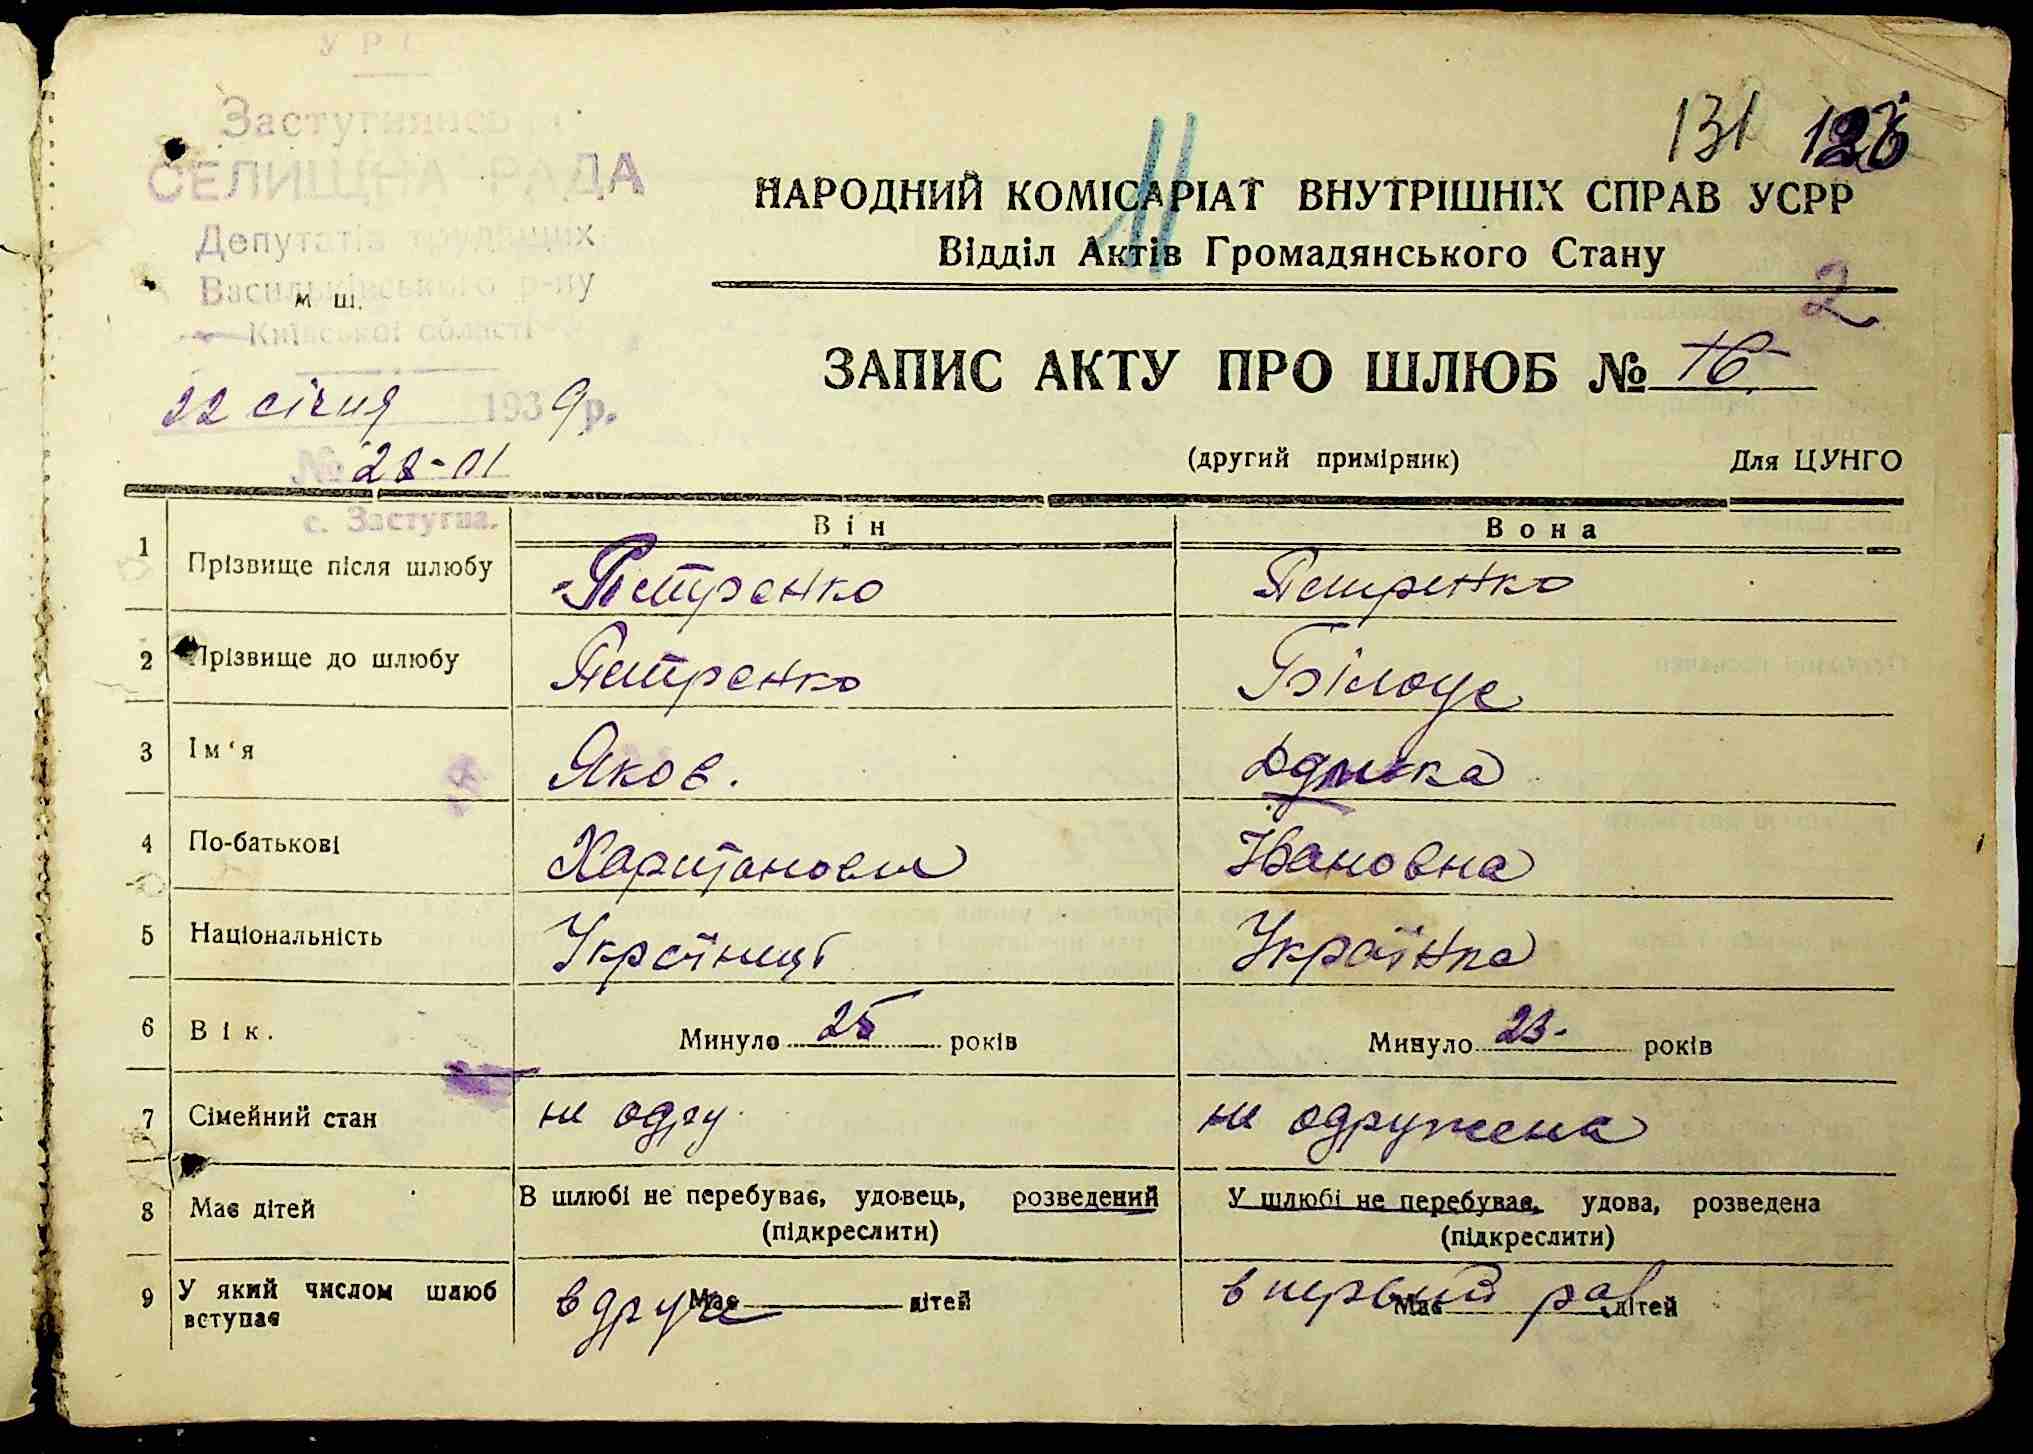 131 126
НАРОДНИЙ КОМІСАРІАТ ВНУТРІШНІХ СПРАВ УСРР
Відділ Актів Громадянського Стану
СЕЛИЩНА РАДА
Депутатів трудящих
Васильківського р-ну
м ш.
Київської області
2
ЗАПИС АКТУ ПРО ШЛЮБ № 16
22 січня 1939 р.
(другий примірник) Для ЦУНГО
№ 28-01
с. Застугна.
Він Вона
1 Прізвище після шлюбу Петренко Петренко
2 Прізвище до шлюбу Петренко Білоус
3 Ім'я Яков.
4 По-батькові Харитонович Івановна
5 Національність Українець Українка
6 Вік. Минуло 25 років Минуло 23 років
7 Сімейний стан не одру. не одружена
8 Має дітей В шлюбі не перебуває, удовець, розведений У шлюбі не перебуває, удова, розведена
(підкреслити) (підкреслити)
9 У який числом шлюб вступає Має дітей в первий раз Має дітей